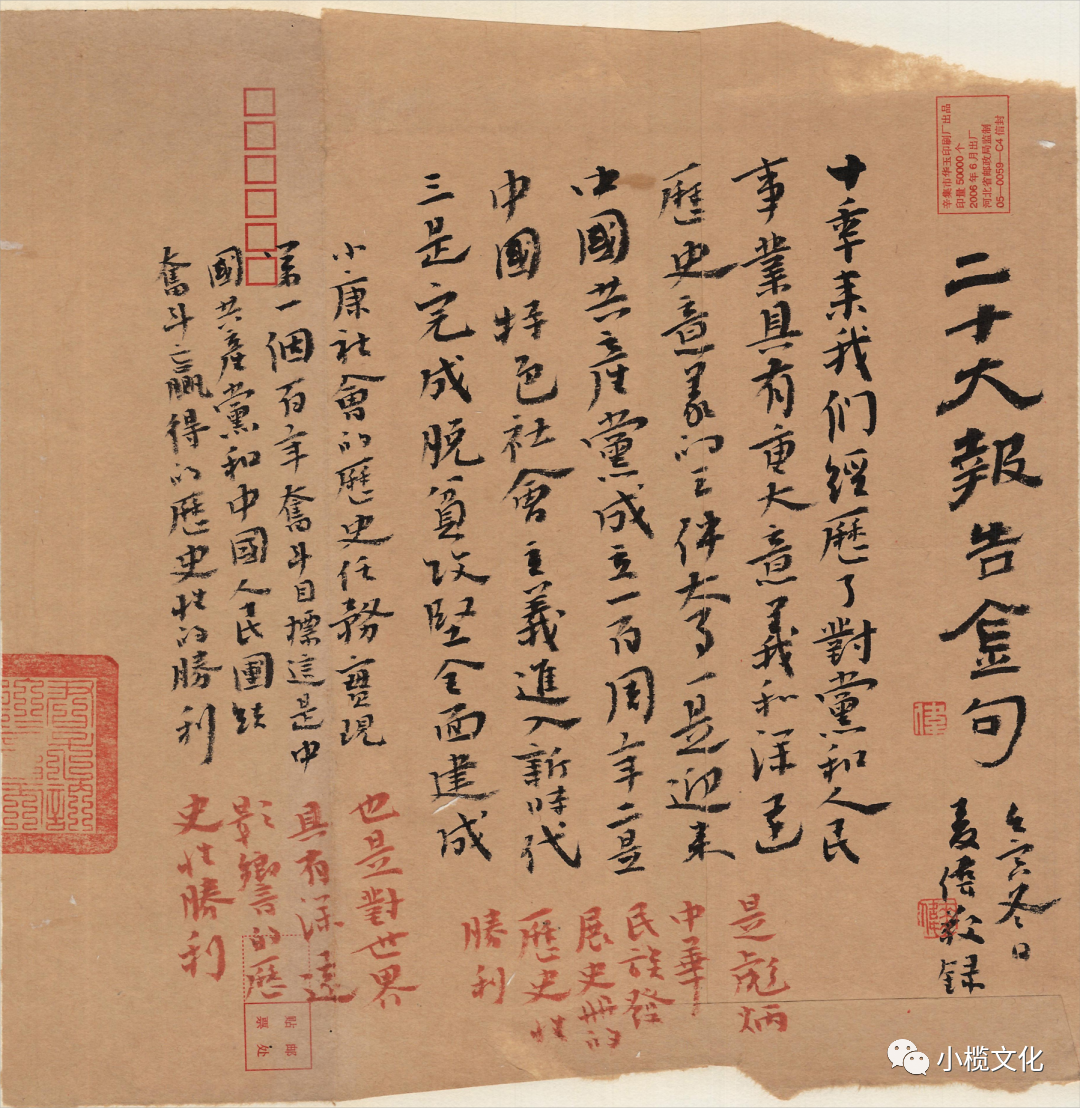 辛集市华玉印刷厂出品
印量 50000 个
2006 年 6 月出厂
河北省邮政局监制
05—0059—C4 信封
二十大報告金句
壬寅冬日
敬録
十年来我们經歷了對黨和人民
事業具有重大意義和深遠
歷史意義的三件大事一是迎来
中國共產黨成立一百周年二是
中國特色社會主義進入新時代
三是完成脱貧攻堅全面建成
小康社會的歷史任務實現
第一個百年奮斗目標這是中
國共產黨和中國人民團结
奮斗贏得的歷史性的勝利
是彪炳
中華
民族發
展史册的
歷史性
勝利
也是對世界
具有深遠
影響的歷
史性勝利
貼邮
票处
小榄文化